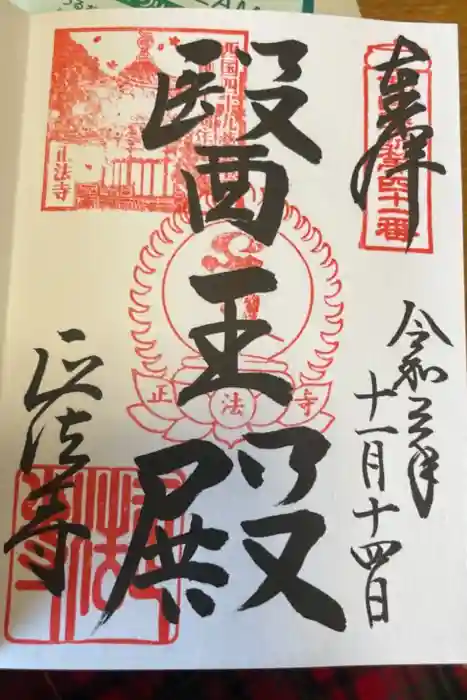 奉拝
四十一番
令和元年
十一月十四日
醫王殿
西国四十九
正法寺
正法寺
正法寺